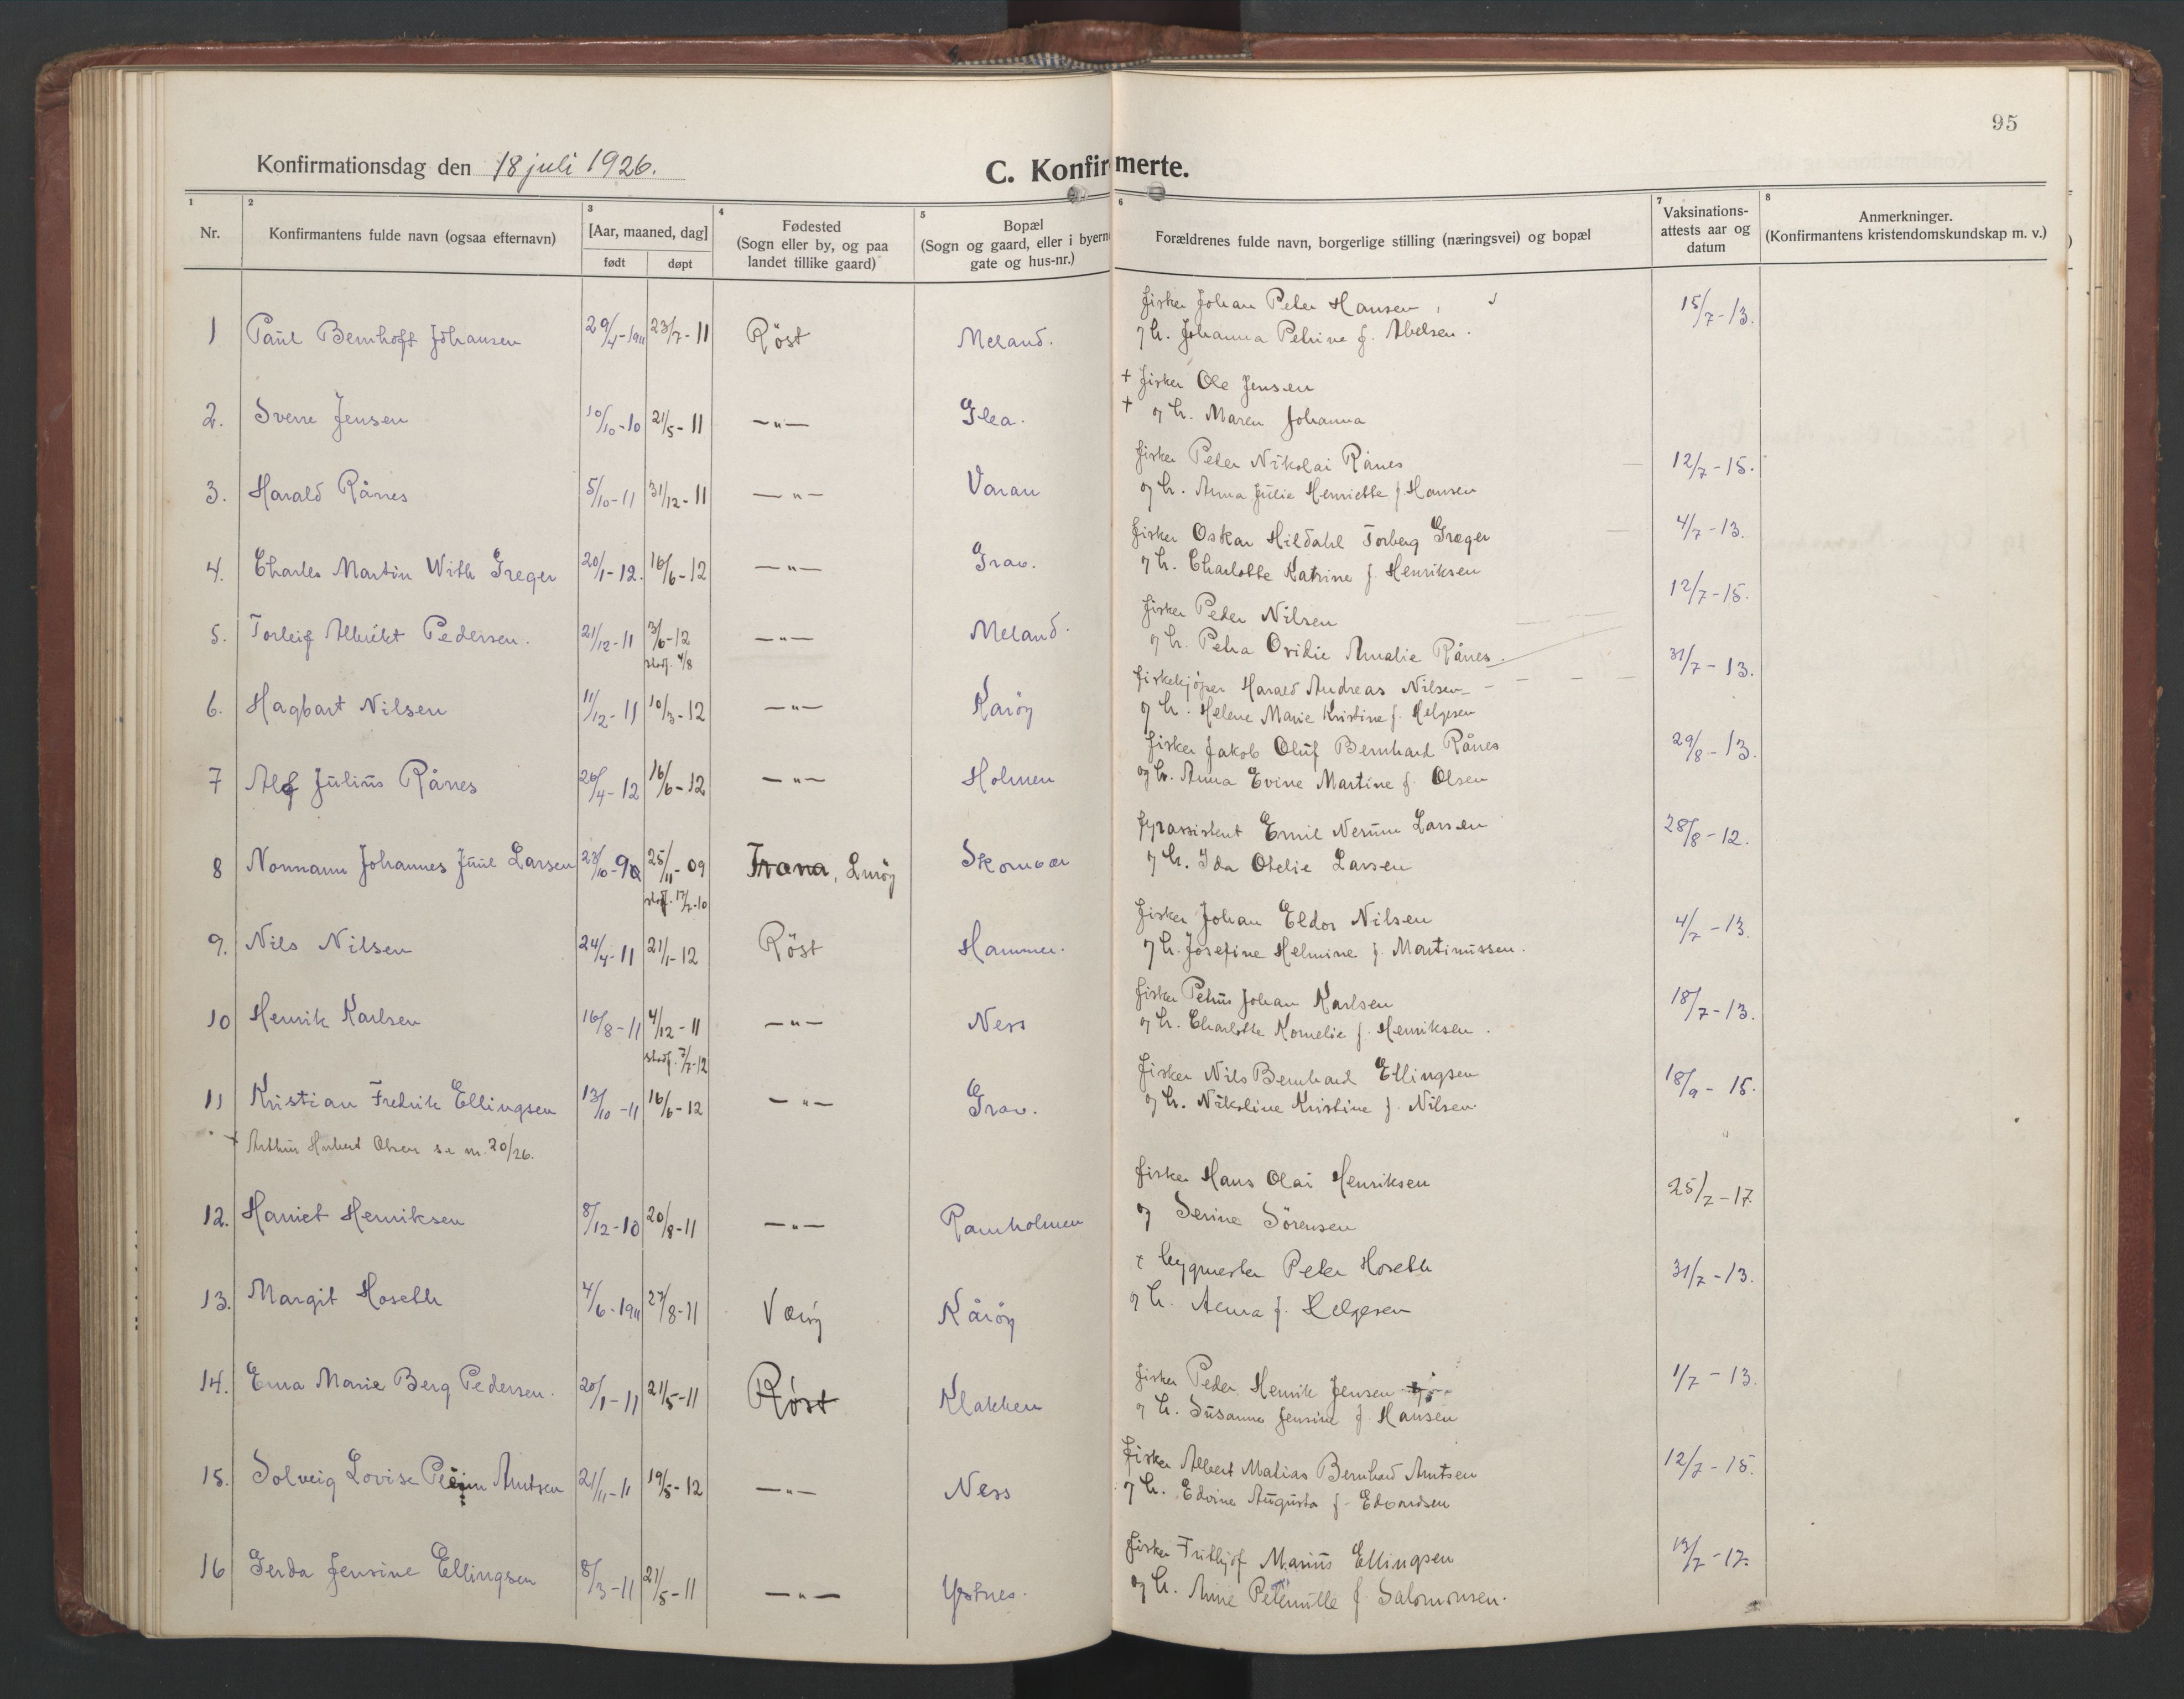 95
Konfirmationsdag den 18 juli 1926.
C. Konfirmerte.
1 2 3 4 5 6 7 8
Nr.
Konfirmantens fulde navn (ogsaa efternavn)
[Aar, maaned, dag]
født døpt
Fødested
(Sogn eller by, og paa
landet tillike gaard)
Bopæl
(Sogn og gaard, eller i byern
gate og hus-nr.)
Forældrenes fulde navn, borgerlige stilling (næringsvei) og bopæl
Vaksinations-
attests aar og
datum
Anmerkninger.
(Konfirmantens kristendomskundskap m. v.)
1 Paul Bernhoft Johansen 29/4-1911 23/7-11 Röst Meland.
fisker Johan Peter Hansen, 15/7-13.
og h. Johanna Petrine f. Abelsen.
2. Sverre Jensen 10/10-10 21/5-11 —"— Glea.
+ fisker Ole Jensen
+ og h. Maren Johanna
3. Harald Rånes 5/10-11 31/12-11 —"— Varan
fisker Peder Nikolai Rånes 12/7-15.
og h. Anna Julie Henriette f. Hansen
4. Charles Martin With Greger 20/1-12. 16/6-12 —"— Grav.
fisker Oskar Hildahl Torberg Greger 4/7-13.
og h. Charlotte Katrine f. Henriksen
5. Torleif Albrikt Pedersen. 21/12-11 3/6-12 —"— Meland.
stadf. 4/8
fisker Peder Nilsen 12/7-15.
og h. Petra Ovidie Amalie Rånes.
6. Hagbart Nilsen 11/12-11 10/3-12 —"— Karöy
fiskekjöper Harald Andreas Nilsen 31/7-13.
og h. Helene Marie Kristine f. Helgesen
7 Alf Julius Rånes 26/4-12 16/6-12 —"— Holmen
fisker Jakob Oluf Bernhard Rånes 29/8-13.
og h. Anna Evine Martine f. Olsen
8 Normann Johannes Juul Larsen 23/10-9 25/11-09 Træna, Luröy Skomvær
stadf. 17/7-10
fyrassistent Emil Nerum Larsen 28/8-12.
og h. Ida Otelie Larsen
9. Nils Nilsen 24/4-11 21/1-12 Röst Hammer.
fisker Johan Eldor Nilsen 4/7-13.
og h. Josefine Helmine f. Martinussen.
10 Henrik Karlsen 16/8-11 4/12-11 —"— Ness
stadf. 7/7-12
fisker Petrus Johan Karlsen 18/7-13.
og h. Charlotte Kornelie f. Henriksen.
11 Kristian Fredrik Ellingsen 13/10-11 16/6-12 —"— Grav.
fisker Nils Bernhard Ellingsen 18/9-15.
og h. Nikoline Kristine f. Nilsen.
+ Arthur Herbert Olsen se nr. 20/26.
12. Harriet Henriksen 8/12-10 20/8-11 —"— Ramholmen
fisker Hans Olai Henriksen 25/7-17.
og Serine Sörensen
13. Margit Hoseth 4/6-1911 27/8-11 Værøy Kåröy
+ bygmester Peter Hoseth 31/7-13.
og h. Anna f. Helgesen
14. Erna Marie Berg Pedersen. 20/1-11 21/5-11 Røst Klakken
fisker Peder Henrik Jensen 1/7-13.
og h. Susanna Jensine f. Hansen
15. Solveig Lovise Arntsen 21/11-11 19/5-12 —"— Ness
fisker Albert Matias Bernhard Arntsen 12/7-15.
og h. Edvine Augusta f. Edvardsen
16 Gerda Jensine Ellingsen 8/3-11 21/5-11 —"— Ystnes.
fisker Frithjof Marius Ellingsen 13/7-17.
og h. Anne Peternille f. Salomonsen.